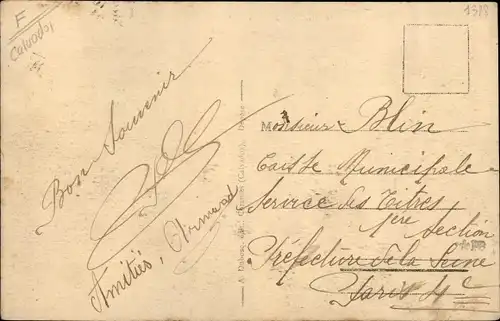 F
Calvados
1318
Bon Souvenir
Amitiés, Armand
Monsieur Blin
Caisse Municipale
Service des Titres
1ère Section
Préfecture de la Seine
Paris 4e